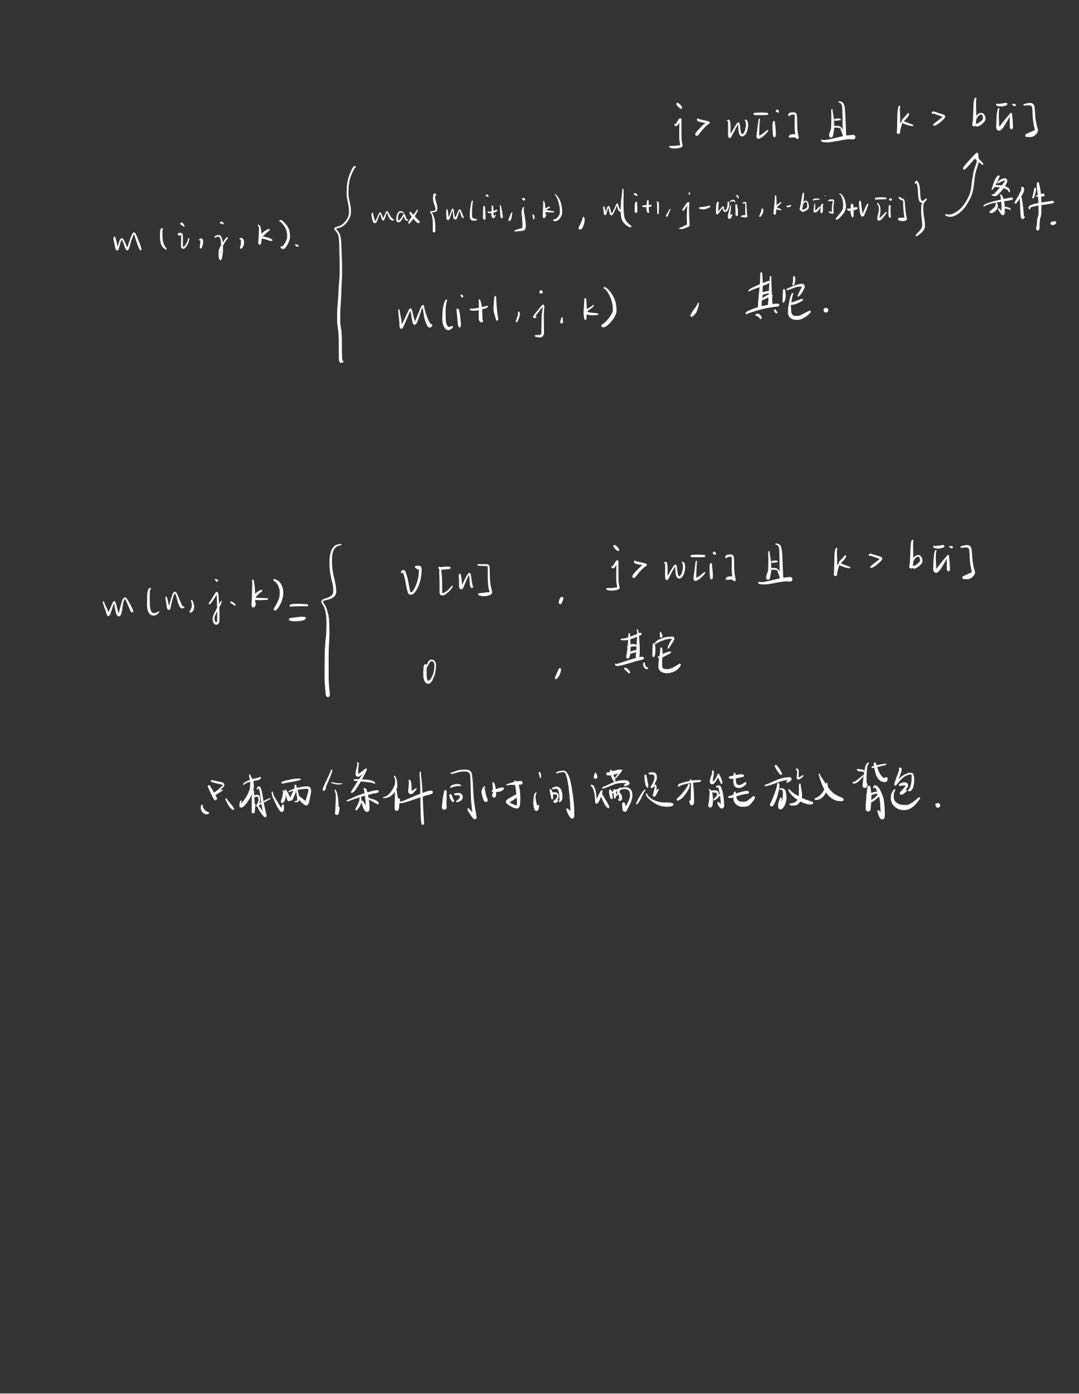 j > w[i] 且 k > b[i]
m(i, j, k). max{m(i+1, j, k), m(i+1, j-w[i], k-b[i])+v[i]} 条件.
m(i+1, j, k) , 其它.
m(n, j, k) = v[n] , j > w[i] 且 k > b[i]
0 , 其它
只有两个条件同时间满足才能放入背包.